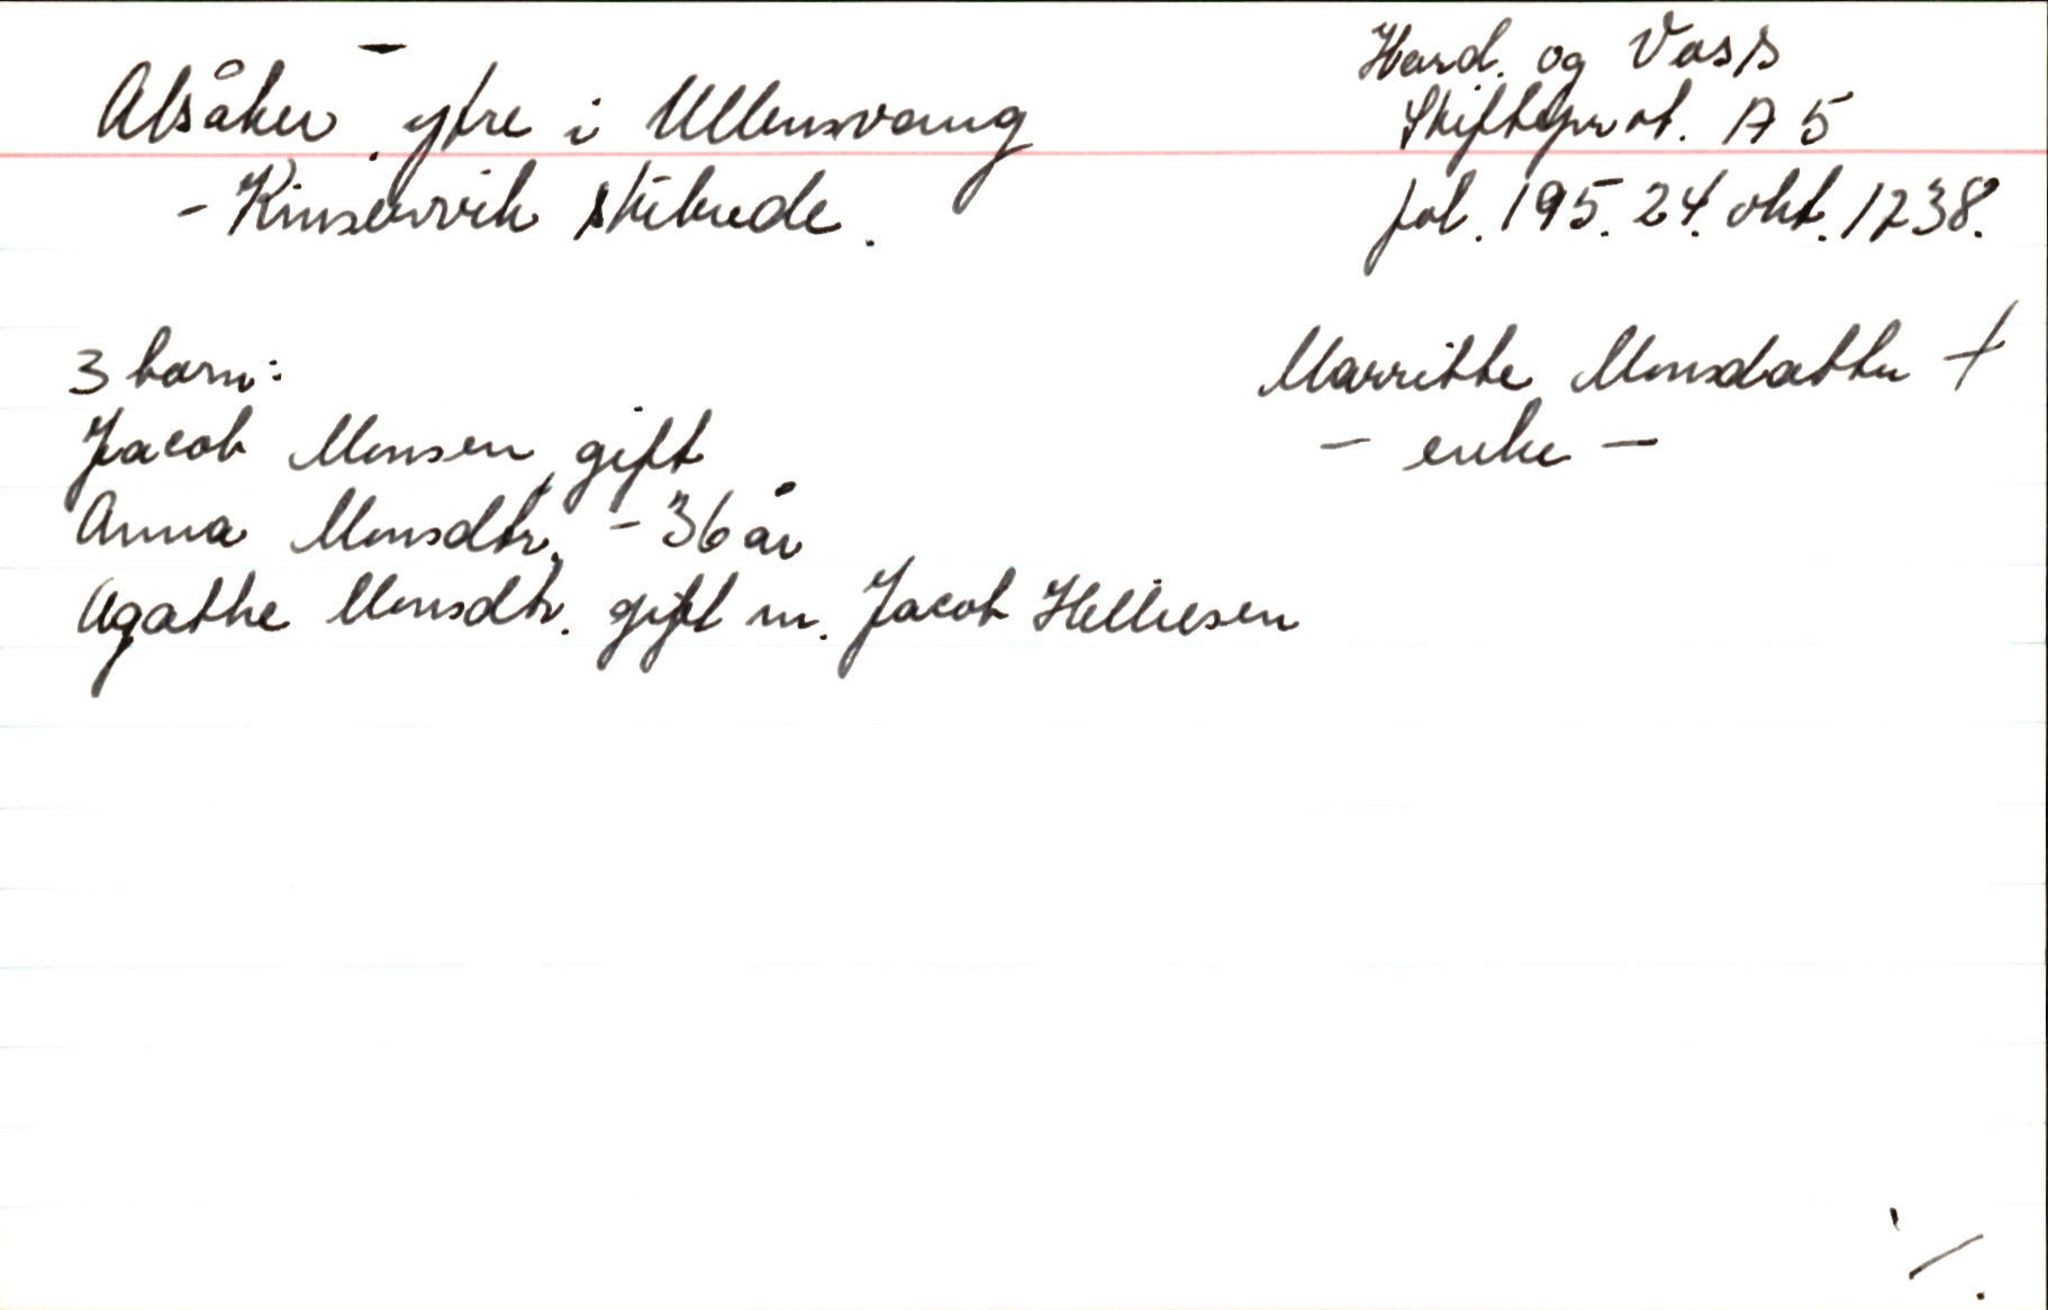 Alsåker ytre i Ullensvang
- Kinservik skibrede.
Hard. og Voss
Skifteprot. A 5
fol. 195. 24. okt. 1738.
Marritte Monsdatter +
- enke -
3 barn:
Jacob Monsen, gift
Anna Monsdtr. - 36 år
Agathe Monsdtr. gift m. Jacob Helliesen